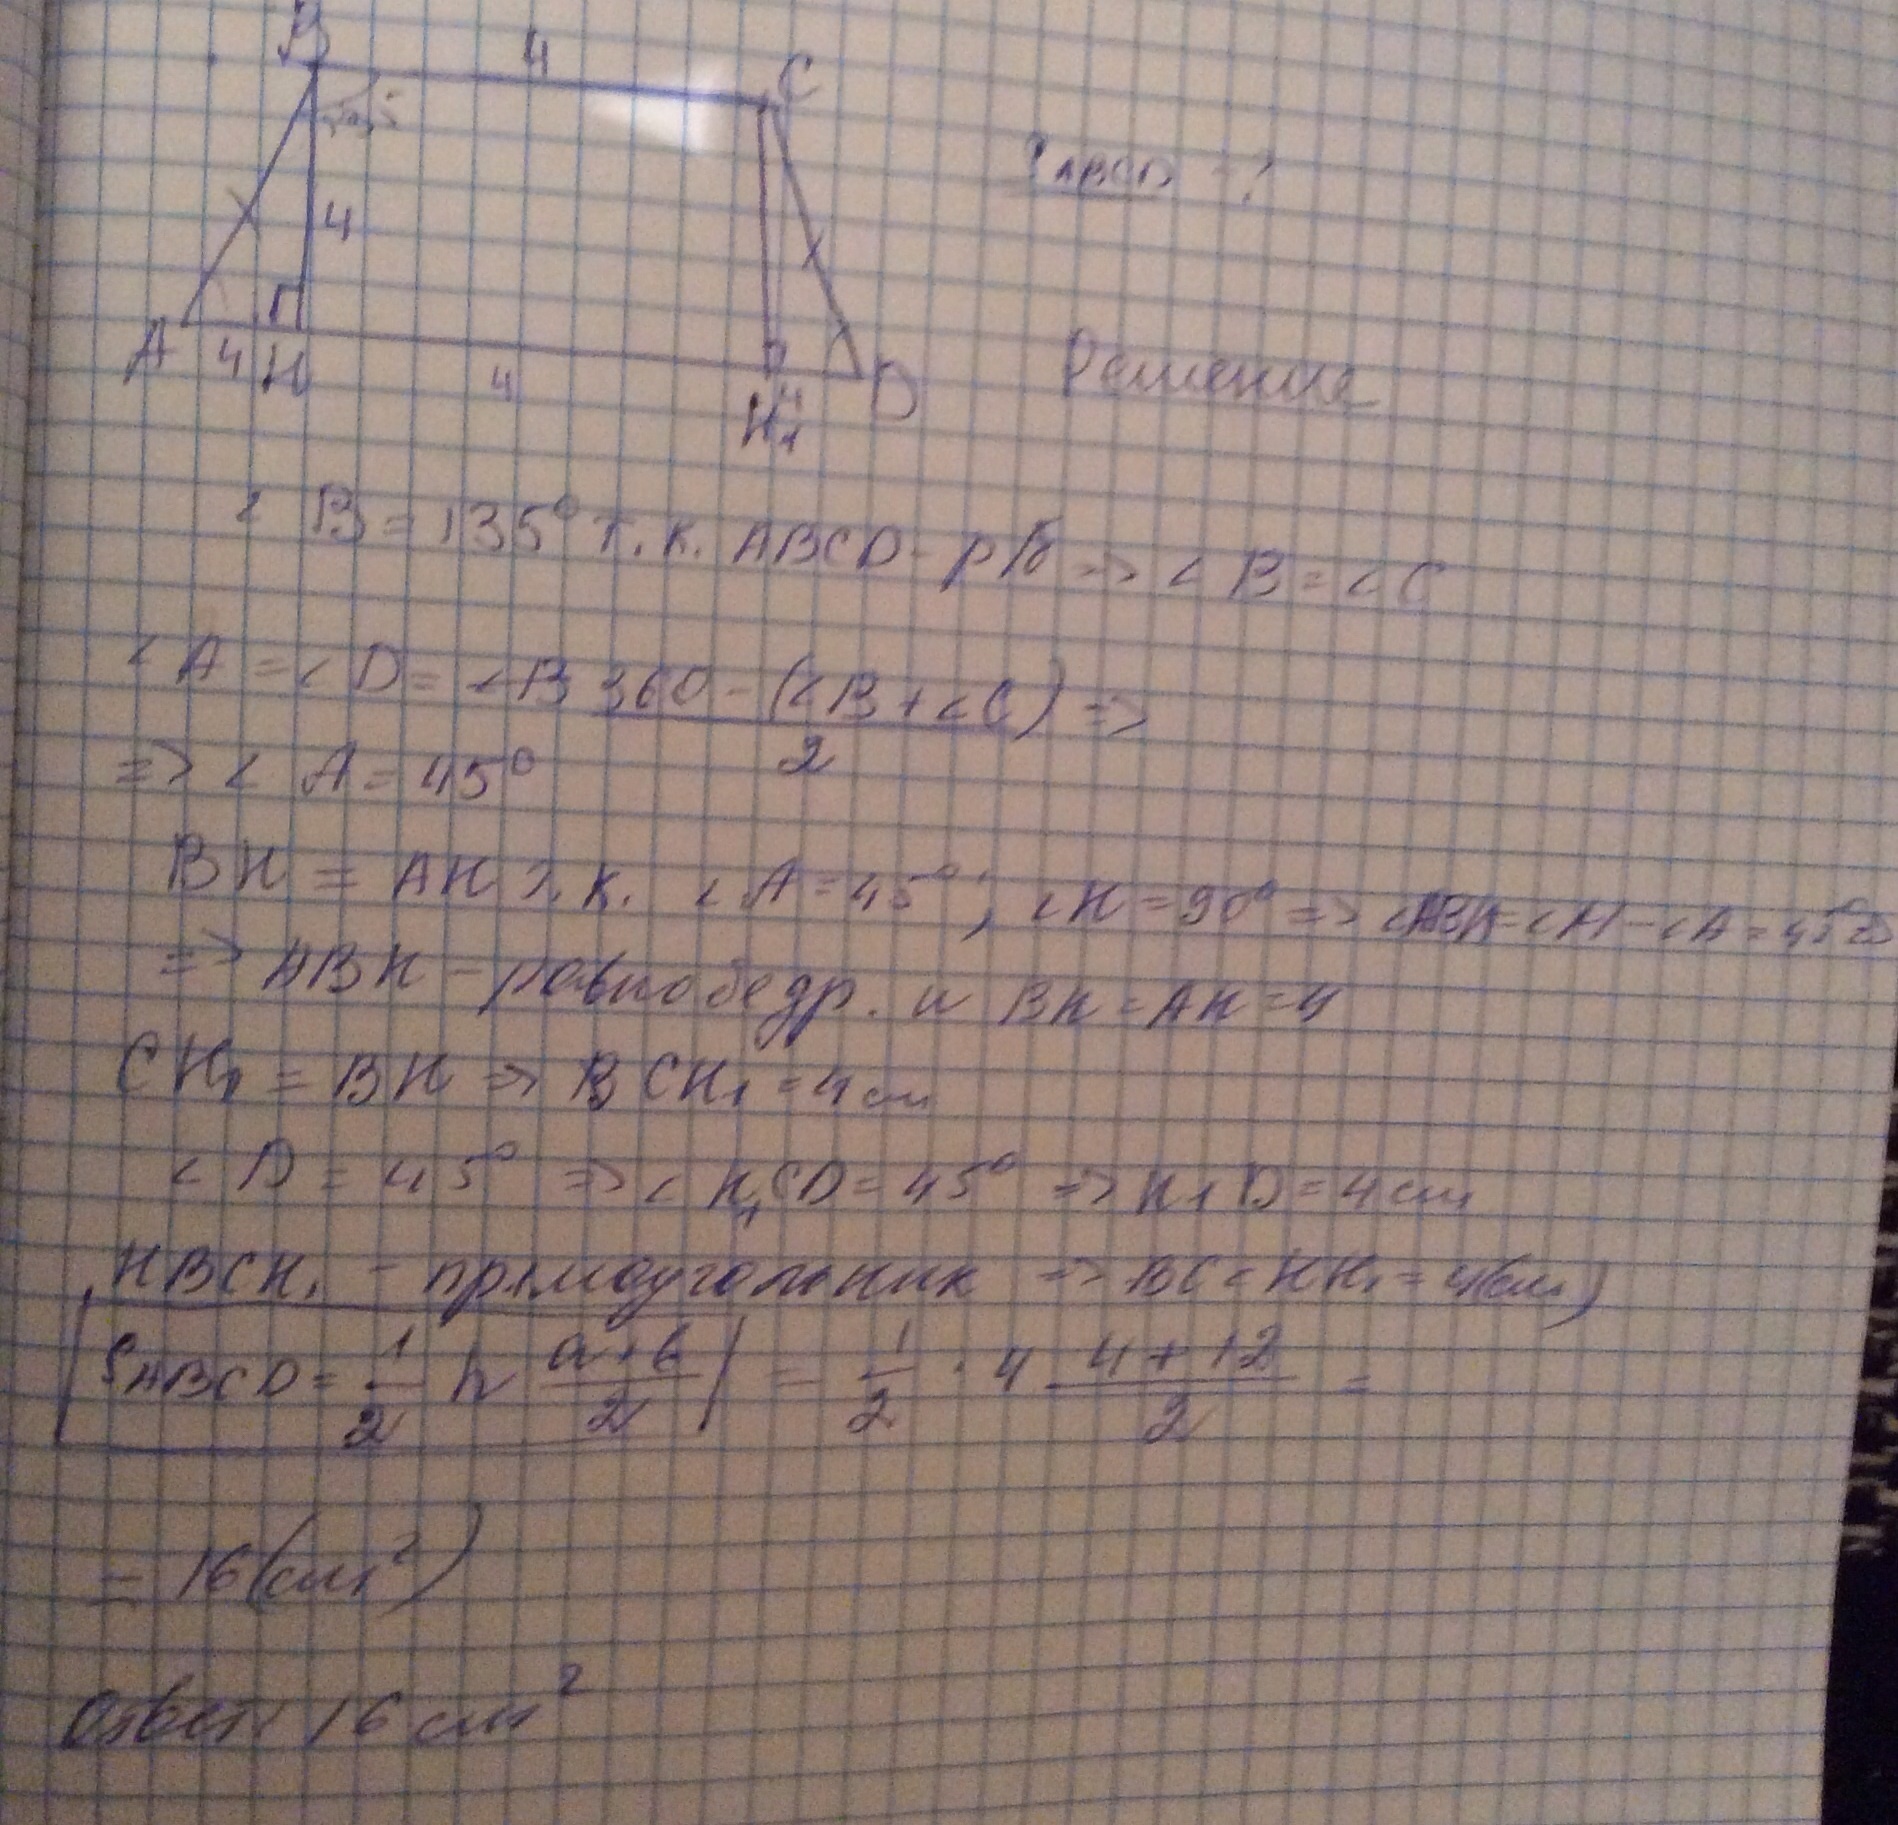 B 4 C
135°
4
S ABCD - ?
A 4 H 4 H₁ 4 D
Решение
∠ B = 135° т.к. ABCD - р/б => ∠ B = ∠ C
∠ A = ∠ D = ∠B 360 - (∠B + ∠C) / 2 =>
=> ∠ A = 45°
BH = AH т.к. ∠ A = 45°; ∠H = 90° => ∠ABH = ∠H - ∠A = 45° =>
=> ABH - равнобедр. и BH = AH = 4
CH₁ = BH => B CH₁ = 4 см
∠ D = 45° => ∠ H₁CD = 45° => H₁D = 4 см
HBCH₁ - прямоугольник => BC = HH₁ = 4(см)
S ABCD = 1/2 h a+b/2 = 1/2 · 4 4+12/2 =
= 16 (см²)
Ответ: 16 см²